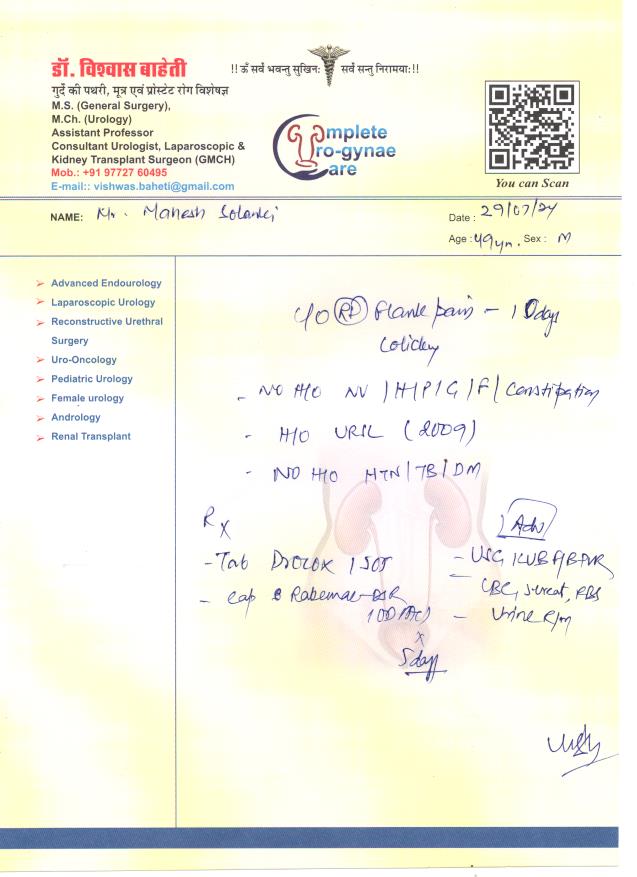 डॉ. विश्वास बाहेती
!! ॐ सर्वे भवन्तु सुखिनः सर्वे सन्तु निरामयाः !!
गुर्दे की पथरी, मूत्र एवं प्रोस्टेट रोग विशेषज्ञ
M.S. (General Surgery),
M.Ch. (Urology)
Assistant Professor
Consultant Urologist, Laparoscopic &
Kidney Transplant Surgeon (GMCH)
Mob.: +91 97727 60495
E-mail:: vishwas.baheti@gmail.com
Complete
Uro-gynae
Care
You can Scan
NAME: Mr. Mahesh Solanki
Date : 29/07/24
Age : 49 yrs. Sex : M
Advanced Endourology
Laparoscopic Urology
Reconstructive Urethral
Surgery
Uro-Oncology
Pediatric Urology
Female urology
Andrology
Renal Transplant
C/O Rt Flank pain - 10 days
Colicky
- NO H/O NV / H / P / G / F / Constipation
- H/O URSL (2009)
- NO H/O HTN / TB / DM
Rx
- Tab 1 SOS
- Cap Rabemac-DSR
1 OD
x
5 days
Adv
- USG KUB
CBC, S. creat, RBS
- Urine R/m